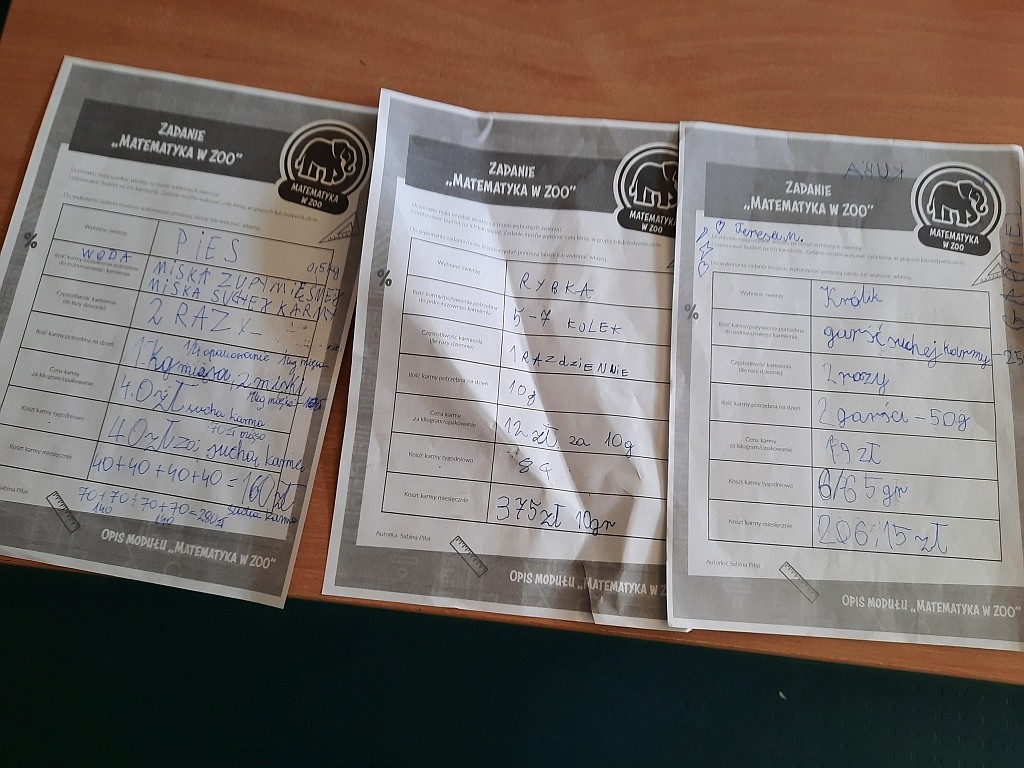 ZADANIE
„MATEMATYKA W ZOO”
MATEMATYKA
W ZOO
%
Wybrane zwierzę
PIES
0,5kg
WODA
MISKA ZUPY MIĘSNEJ
MISKA SUCHEJ KARMY
Częstotliwość karmienia
(ile razy dziennie)
2 RAZY
Ilość karmy potrzebna na dzień
1kg mięsa, 2 miski
Cena karmy
za kilogram/opakowanie
40zł sucha karma
Koszt karmy tygodniowo
40zł za suchą karmę
Koszt karmy miesięcznie
40+40+40+40=160zł
sucha karma
70+70+70+70=280zł
140 140
Sabina Piłat
OPIS MODUŁU „MATEMATYKA W ZOO”
ZADANIE
„MATEMATYKA W ZOO”
MATEMATYKA
W ZOO
%
Wybrane zwierzę
RYBKA
Ilość karmy/pożywienia potrzebna
do jednorazowego karmienia
5-7 KULEK
Częstotliwość karmienia
(ile razy dziennie)
1 RAZ dzIENNIE
Ilość karmy potrzebna na dzień
10g
Cena karmy
za kilogram/opakowanie
12 zł za 10g
Koszt karmy tygodniowo
84
Koszt karmy miesięcznie
375zł 10gr
Autorka: Sabina Piłat
OPIS MODUŁU „MATEMATYKA W ZOO”
KURA
ZADANIE
„MATEMATYKA W ZOO”
MATEMATYKA
W ZOO
Teresa M.
%
Wybrane zwierzę
Królik
Ilość karmy/pożywienia potrzebna
do jednorazowego karmienia
garść suchej karmy - 25
Częstotliwość karmienia
(ile razy dziennie)
2 razy
Ilość karmy potrzebna na dzień
2 garści - 50g
Cena karmy
za kilogram/opakowanie
19 zł
Koszt karmy tygodniowo
6/65gr
Koszt karmy miesięcznie
206;15 zł
Autorka: Sabina Piłat
OPIS MODUŁU „MATEMATYKA W ZOO”